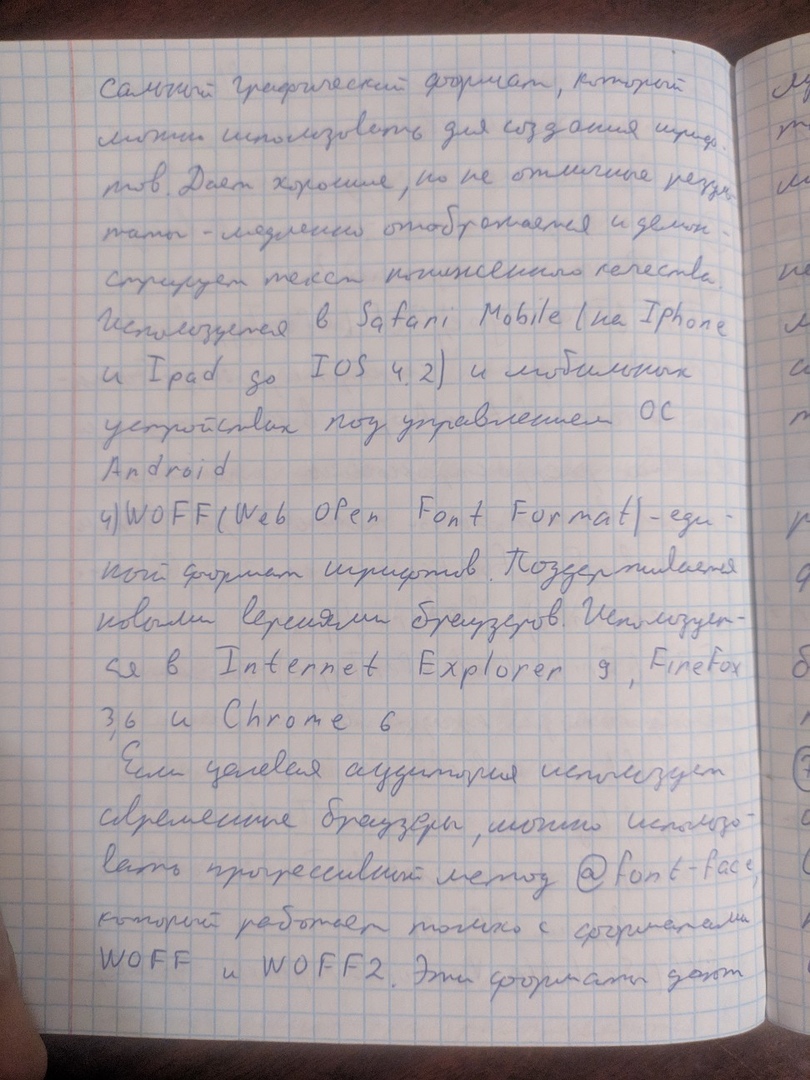 сальный графический формат, который
можно использовать для создания шриф-
тов. Дает хорошие, но не отличные резуль
таты - медленно отображается и демон-
стрирует текст пониженного качества.
Используется в Safari Mobile (на Iphone
и Ipad до IOS 4.2) и мобильных
устройствах под управлением ОС
Android
4) WOFF (Web Open Font Format) - еди-
ный формат шрифтов. Поддерживается
новыми версиями браузеров. Использует-
ся в Internet Explorer 9, FireFox
3,6 и Chrome 6
Если целевая аудитория использует
современные браузеры, можно использо-
вать прогрессивный метод @font-face,
который работает только с форматами
WOFF и WOFF2. Эти форматы дают